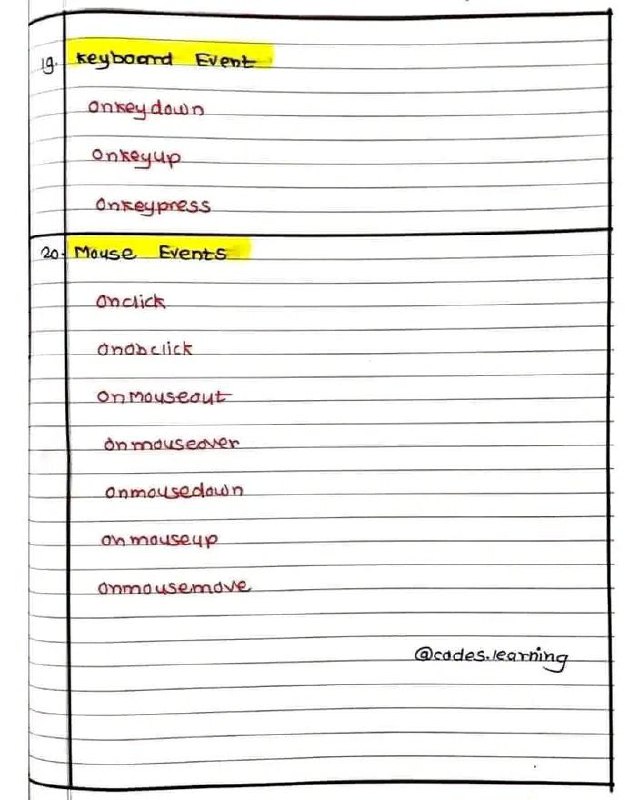 19. Keyboard Event
onkeydown
onkeyup
onkeypress
20. Mouse Events
onclick
onobclick
onmouseout
onmouseover
onmousedown
onmouseup
onmousemove
@codes.learning